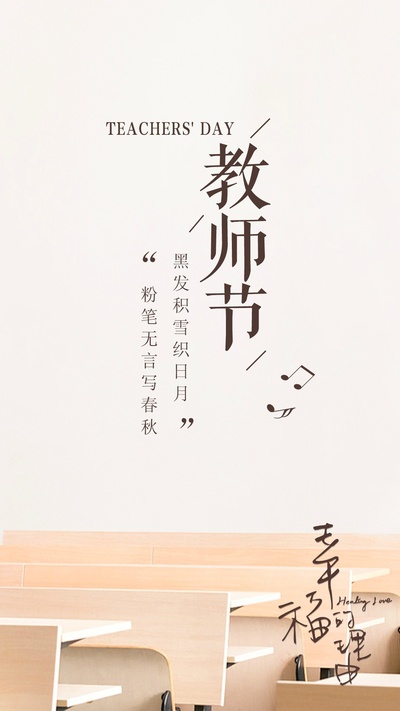 TEACHERS' DAY
教师节
“黑发积雪织日月
粉笔无言写春秋”
幸福
的理由
Healing Love